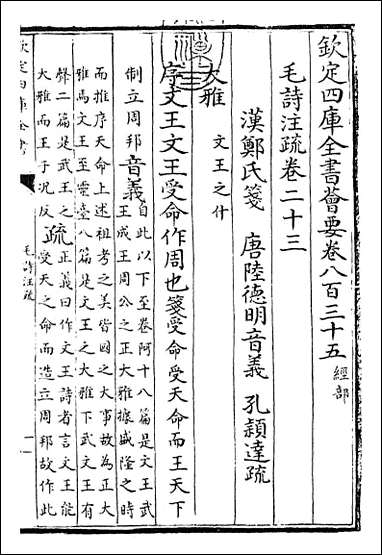 欽定四庫全書薈要卷八百三十五 經部
毛詩注疏卷二十三
漢鄭氏箋 唐陸德明音義 孔穎達疏
大雅 文王之什
序文王文王受命作周也箋受命受天命而王天下
制立周邦音義自此以下至卷阿十八篇是文王武
王成王周公之正大雅據盛隆之時
而推序天命上述祖考之美皆國之大事故為正大
雅焉文王至靈臺八篇是文王之大雅下武文王有
聲二篇是武王之
大雅而王于況反
疏正義曰作文王詩者言文王能
受天之命而造立周邦故作此
欽定四庫全書
毛詩注疏
一